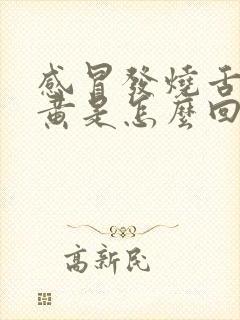 感冒發燒舌
黃是怎麼回
高新民